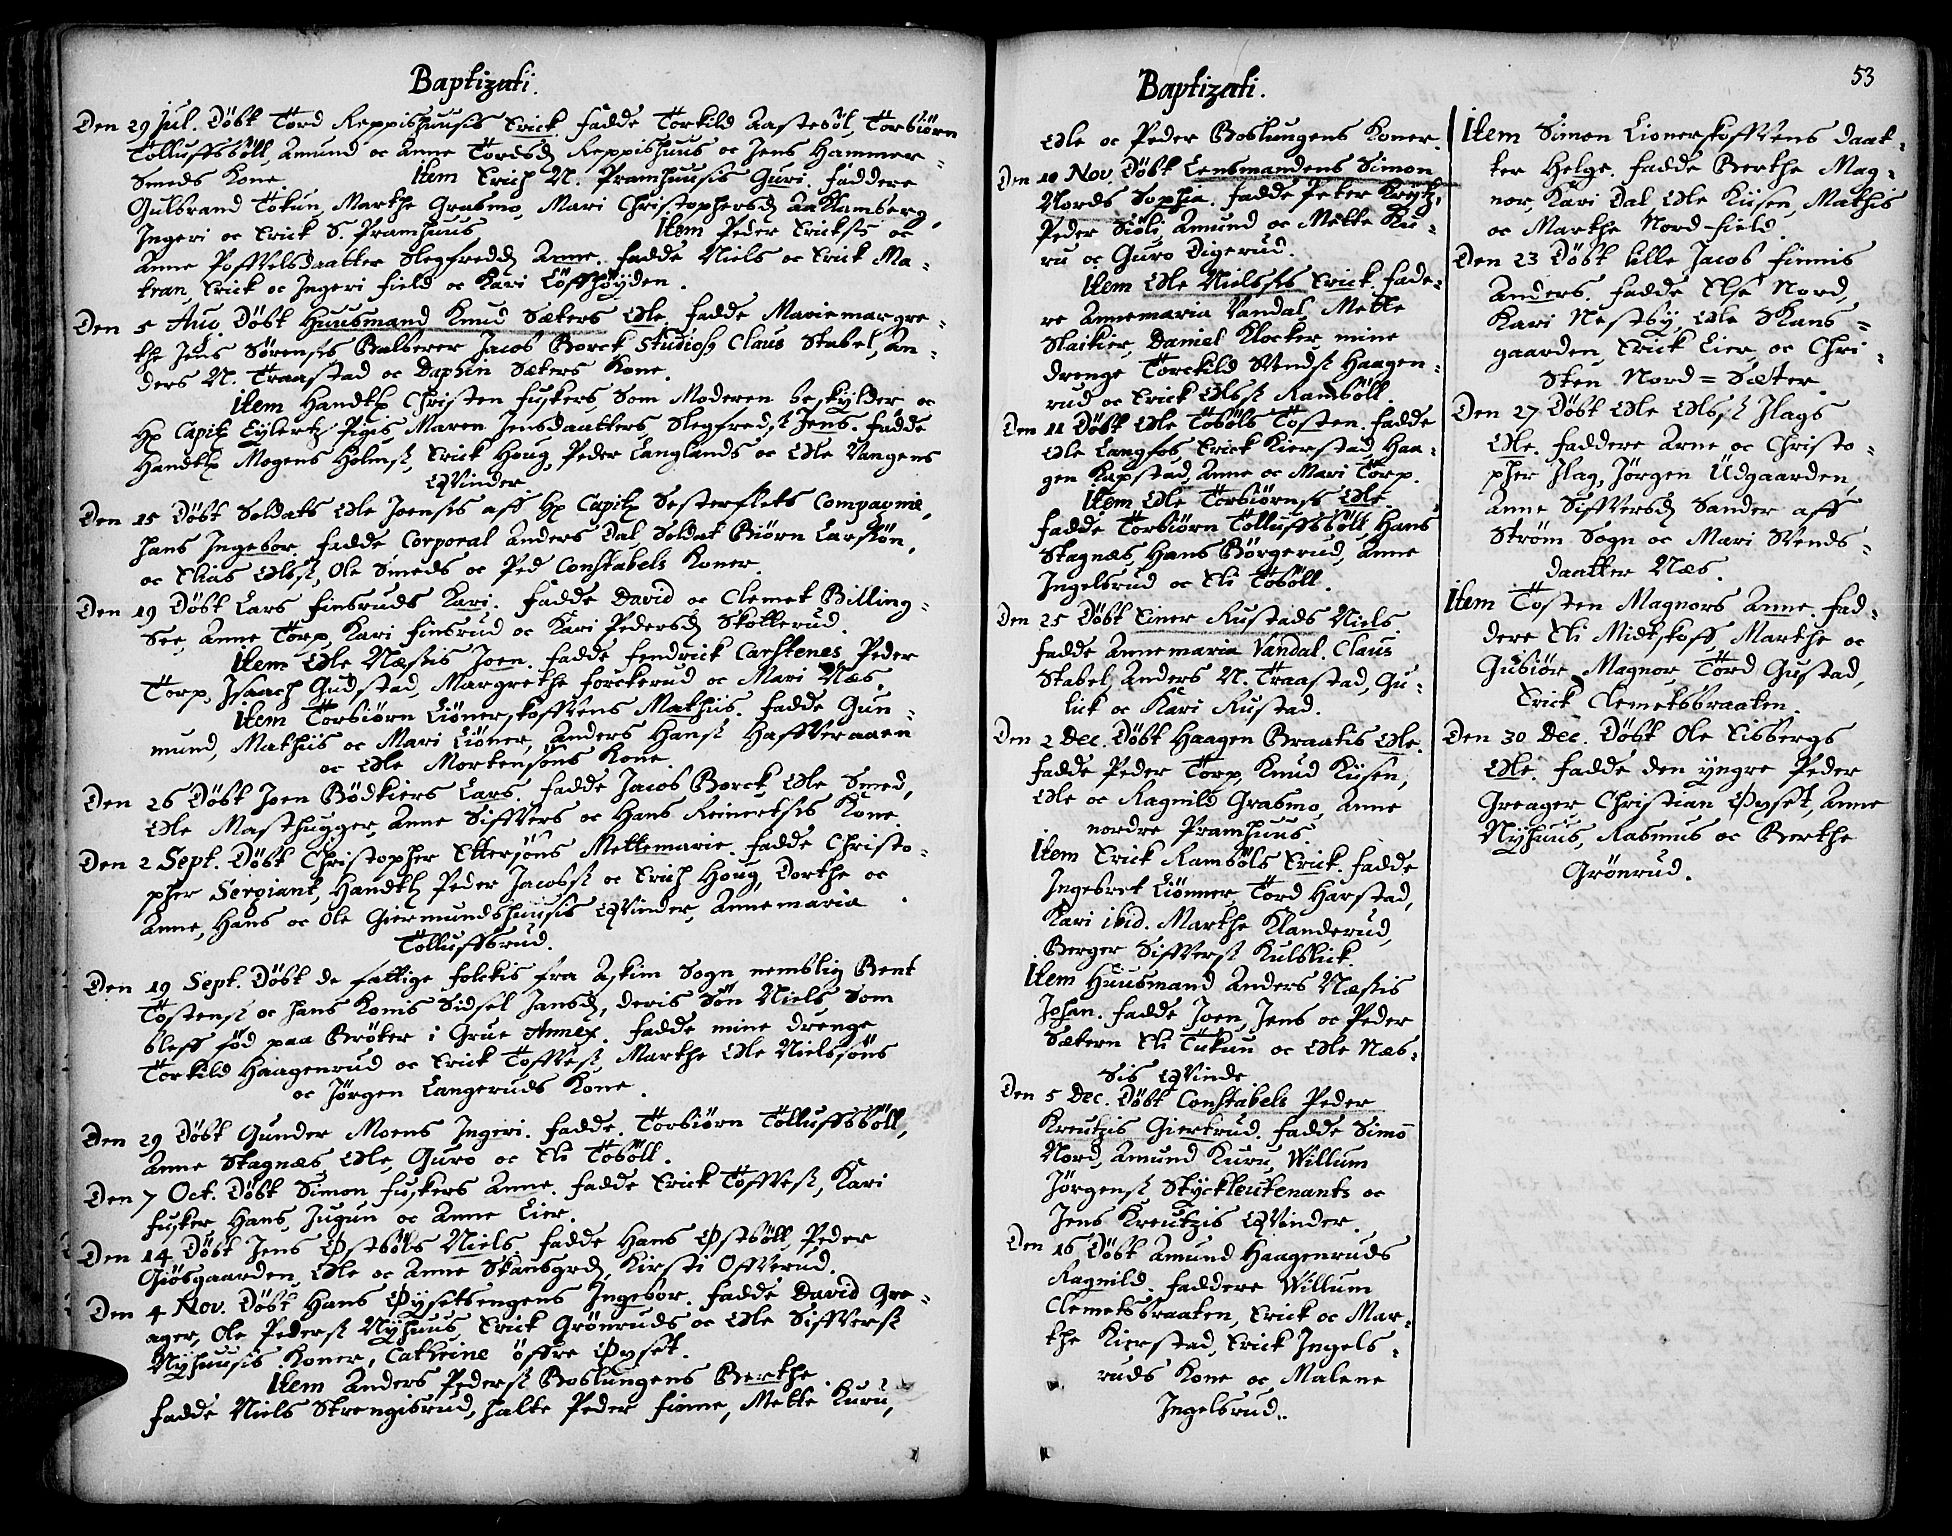 Baptizati.
Den 29 Jul. Döbt Tord Reppishuusis Erick fadde Torkild Aastesöl, Torbiörn
Tolluffsböll, Amund oc Anne Tordsd. Reppishuus oc Jens Hammer=
Smeds Kone Item Erich N. Pramhuusis Guri. faddere
Gulbrand Tokun, Marthe Grasmo, Mari Christophersd. Aaklamberg,
Ingeri oc Erick S. Pramhuus Item Peder Ericks. oc
Anne Poffvelsdaatter Slegfredd. Anne. fadde Niels oc Erick Ma=
tran, Erick oc Ingeri field oc Kari Löffhöyden.
Den 5 Aug. Döbt Huusmand Knud Sæters Ole fadde Mariemargre=
the Jens Sörensis Balberer Jacob Borck Studios. Claus Stabel, An=
ders N. Traastad oc Daphin Sæters Kone.
Item Handtl. Christen fuskers, Som Moderen beskylder oc
Hr. Capit. Eylertz Pigis Maren Jensdaatters, Slegfreds. Jens. fadde
Handtl. Mogens Holms., Erick Houg, Peder Langlands oc Ole Vangens
Qvinder
Den 15 Döbt Soldats Ole Joensis aff Hr. Capit. Sesterflets Compagnie,
hans Ingebor. fadde Corporal Anders Dal Soldat Biörn Larssön,
oc Elias Olss., Ole Smeds oc Ped Constabels Koner.
Den 19 Döbt Lars finsruds Kari. fadde David oc Clemet Billing=
See, Anne Torp, Kari finsrud oc Kari Pedersd. Skotterud.
Item Ole Næssis Joen. fadde fendrick Carstenes, Peder
Torp, Isaach Gudstad, Margrethe forckerud oc Mari Næs.
Item Torbiörn Liönerskoffvens Mathiis. fadde Gun=
mund, Mathiis oc Mari Liöner, Anders Hans. Haffveraaen
oc Ole Mortensöns Kone.
Den 26 Döbt Joen Bödkiers Lars. fadde Jacob Borck, Ole Smed,
Ole Masthugger, Anne Siffvers oc Hans Reinertsis Kone.
Den 2 Sept. Döbt Christopher Ettersöns Mettemarie. fadde Christo=
pher Sergiant, Handtl. Peder Jacobs. oc Erich Houg, Dorthe oc
Anne, Hans oc Ole Giermundshuusis Qvinder, Annemaria
Tolluffsrud.
Den 19 Sept. Döbt de fattige folckis fra Askim Sogn nemblig Bent
Tostens. oc hans Konis Sidsel Jansd., deris Sön Niels Som
bleff fød paa Bröter i Grue Annex. fadde mine drenge
Torkild Haagenrud oc Erick Toffves., Marthe Ole Nielssöns
oc Jörgen Langeruds Kone.
Den 29 Döbt Gunder Moens Ingeri. fadde. Torbiörn Tolluffsböll,
Anne Skagnæs, Ole, Guro oc Eli Tosöll.
Den 7 Oct. Döbt Simon fuskers Anne. fadde Erick Toffves., Kari
fusker, Hans Jugun oc Anne Lier.
Den 14 Döbt Jens Østböls Niels. fadde Hans Østböll, Peder
Giösgaarden, Ole oc Anne Skansgrd., Kirsti Offverud.
Den 4 Nov. Döbt Hans Øysetsengens Ingebor. fadde David Gre=
ager, Ole Peders. Nyhuus Erick Grönruds oc Ole Siffvers.
Nyhuusis Koner, Cathrine öffre Øyset.
Item Anders Peders. Boslungens Berthe
fadde Niels Strengisrud, halte Peder finne, Mette Kuru,
Baptizati.
53
Ole oc Peder Boslungens Koner.
Den 10 Nov. Döbt Lensmandens Simon
Nords Sophia. fadde Peter Kreytz,
Peder Siöli, Amund oc Mette Ku=
ru oc Guro Digerud.
Item Ole Nielssis Erick. fade=
re Annemaria Vandal, Mette
Staikier, Daniel Klocker, mine
drenge Torckild Svends. Haagen=
rud oc Erick Olss. Ramböll.
Den 11 Döbt Ole Tosöls Tosten. fadde
Ole Langfos, Erick Kierstad, Haa=
gen Kapstad, Anne oc Mari Torp.
Item Ole Torbiörns. Ole.
fadde Torbiörn Tolluffsböll, Hans
Skagnæs, Hans Börgerud, Anne
Ingelsrud oc Eli Tosöll.
Den 25 Döbt Einer Rustads Niels
fadde Annemaria Vandal, Claus
Stabel, Anders N. Traastad, Gu=
lick oc Kari Rustad.
Den 2 Dec. Döbt Haagen Braatis Ole.
fadde Peder Torp, Knud Kiisen,
Ole oc Ragnild Grasmo, Anne
nordre Pramhuus.
Item Erick Ramböls Erick. fadde
Ingebret Liönner, Tord Harstad,
Kari ibid. Marthe Klanderud,
Berger Siffvers. Kulblick.
Item Huusmand Anders Næssis
Johan. fadde Joen, Jens oc Peder
Sætern, Eli Tukun oc Ole Næs=
Sis Qvinde
Den 5 Dec. Döbt Constabels Peder
Kreutzis Giertrud. fadde Simō
Nord, Amund Kuru, Willum
Jörgens. Styckleutenants oc
Jens Kreutzis Qvinder.
Den 16 Döbt Amund Haagenruds
Ragnild. faddere Willum
Clemetsbraaten, Erick oc Mar=
the Kierstad, Erick Ingels=
ruds Kone oc Malene
Ingelsrud.
Item Simon Lionerskoffvens daat=
ter Helge. fadde Berthe Mag=
nor, Kari Dal, Ole Kiisen, Mathis
oc Marthe Nord-field.
Den 23 Döbt lille Jacob finnis
Anders. fadde Else Nord,
Kari Nestby, Ole Skans=
gaarden, Erick Lier, oc Chri=
sten Nord=Sæter.
Den 27 Döbt Ole Olss. Ilags
Ole. faddere Arne oc Christo=
pher Ilag, Jörgen Udgaarden,
Anne Siffversd. Sander aff
Ström Sogn oc Mari Svends=
daatter Næs.
Item Tosten Magnors Anne. fad=
dere Eli Midtskoff, Marthe oc
Gubiör Magnor, Tord Gustad,
Erick Clemetsbraaten.
Den 30 Dec. Döbt Ole Eisbergs
Ole. fadde den yngre Peder
Greager Christian Øyset, Anne
Nyhuus, Rasmus oc Berthe
Grönrud.